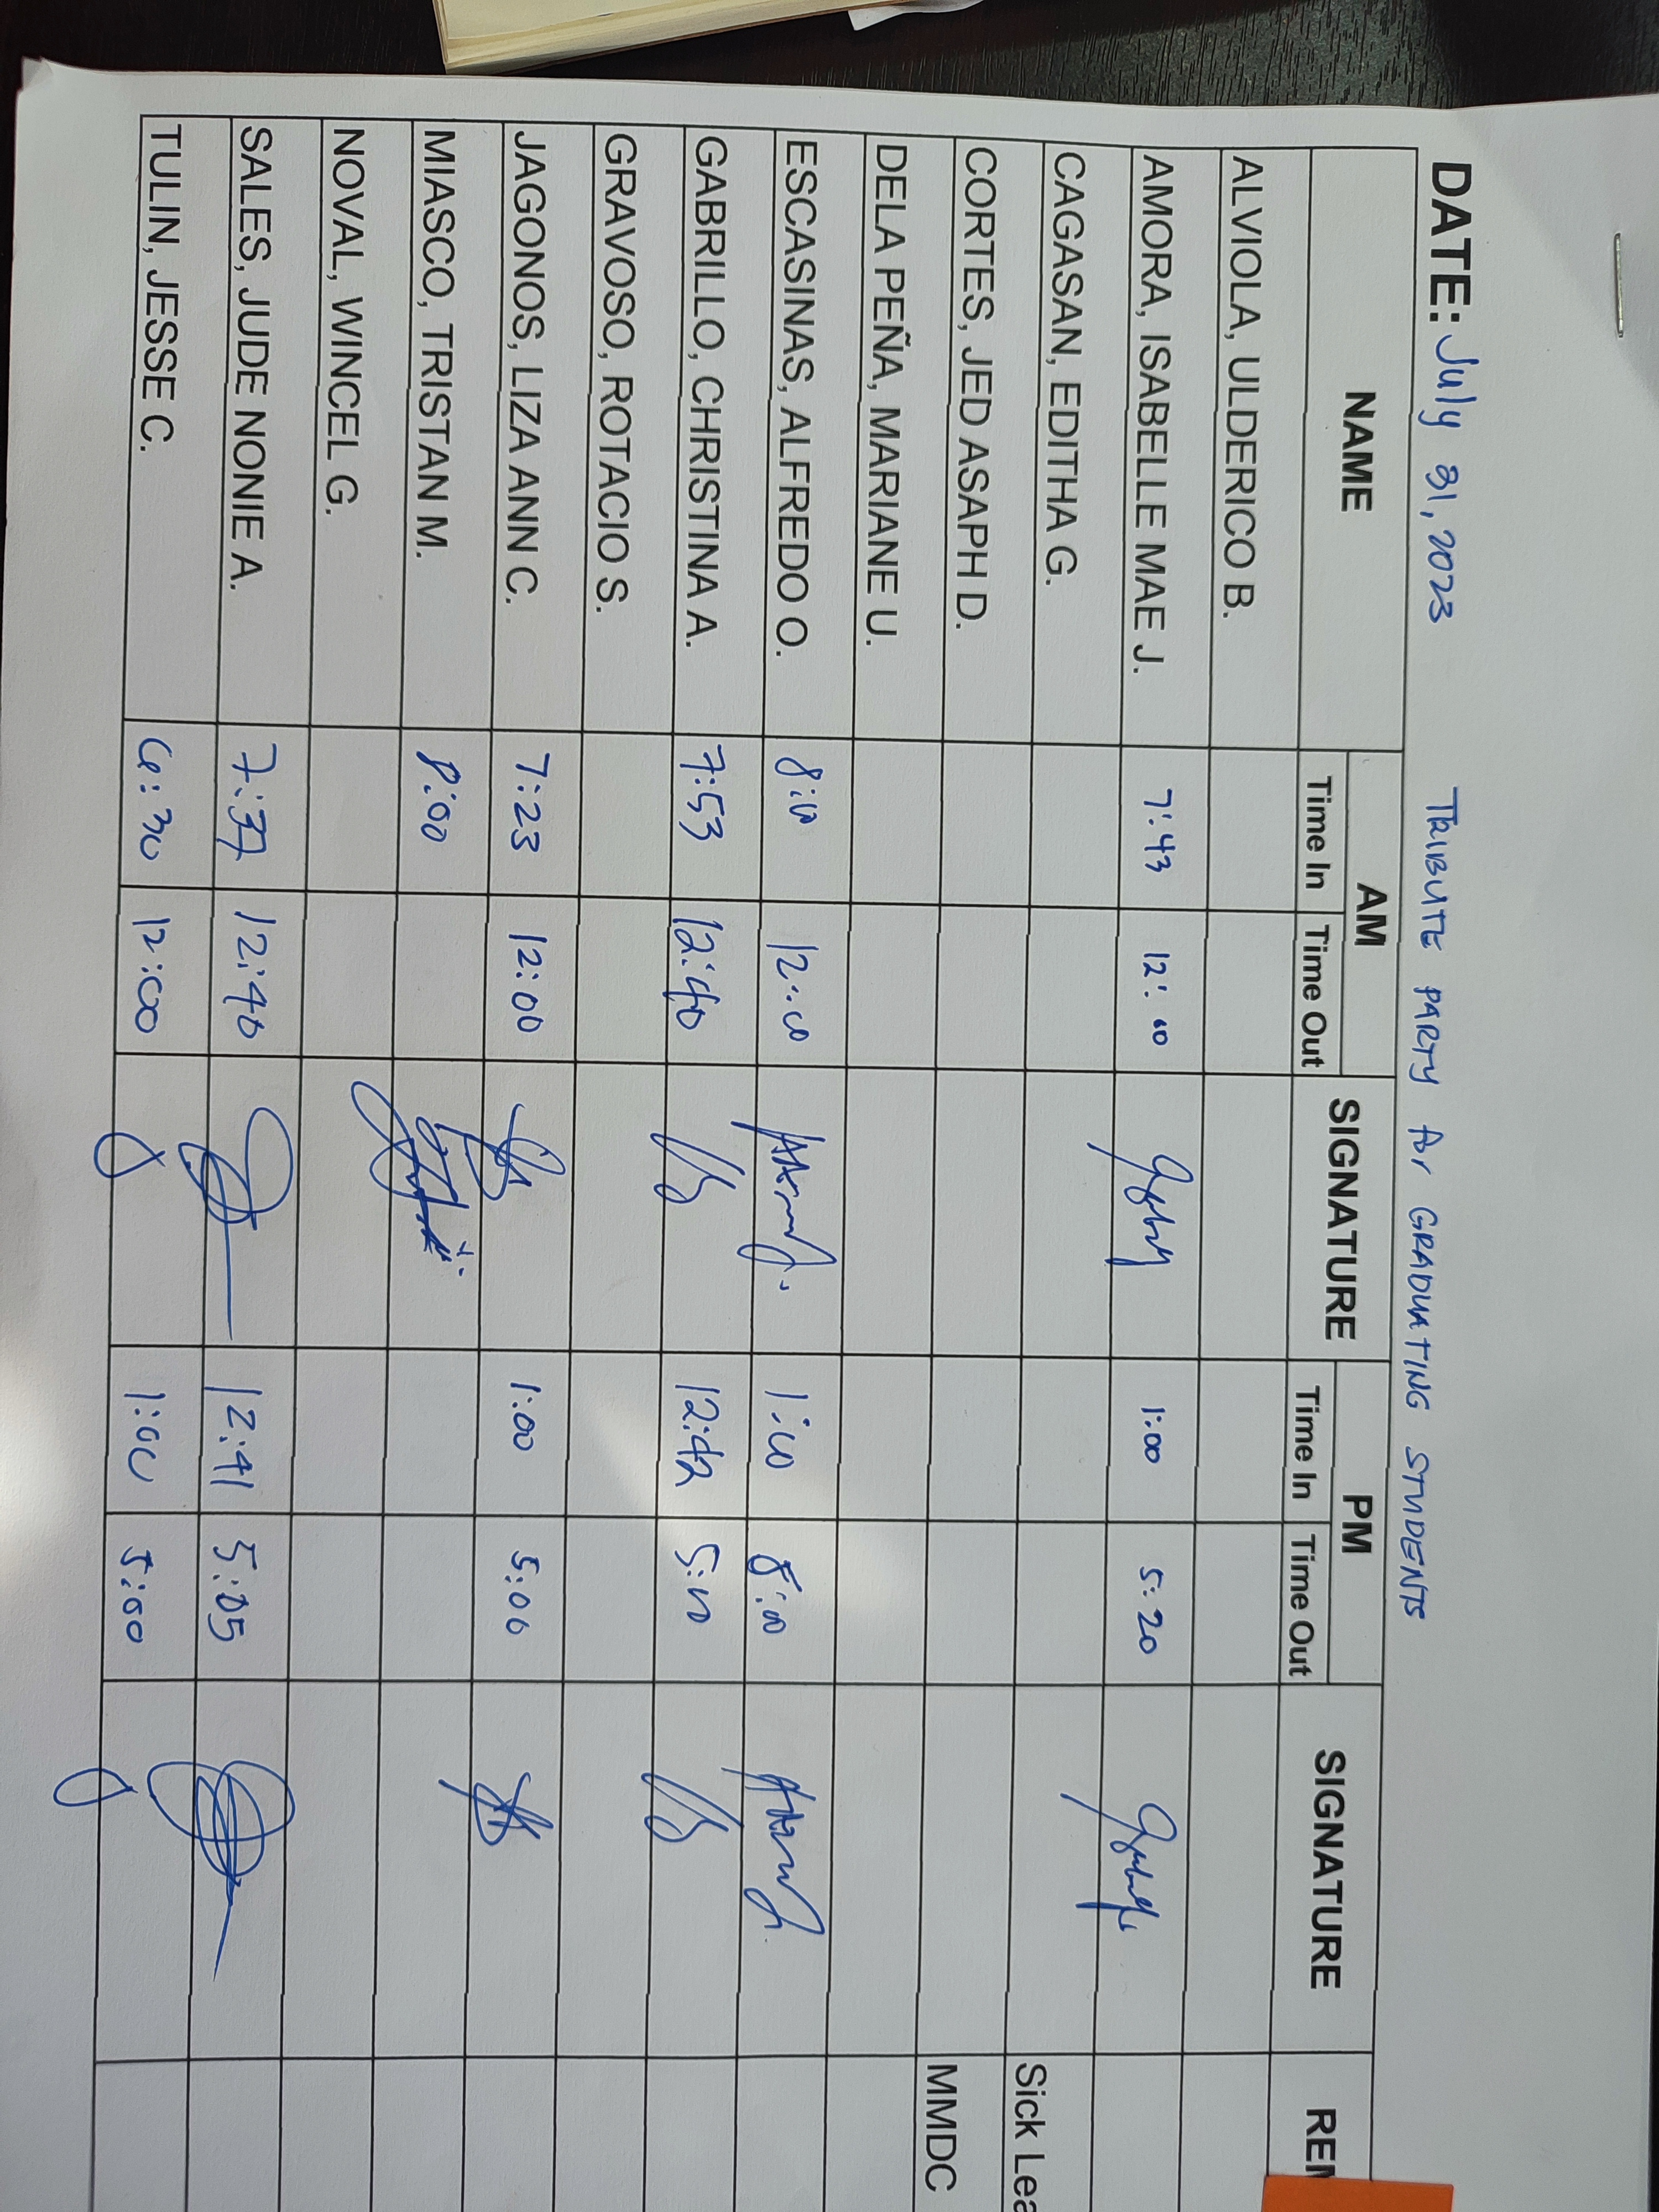 DATE: July 31, 2023 TRIBUTE PARTY for GRADUATING STUDENTS
NAME AM SIGNATURE PM SIGNATURE REM
Time In Time Out Time In Time Out
ALVIOLA, ULDERICO B.
AMORA, ISABELLE MAE J. 7:43 12:00 1:00 5:20
CAGASAN, EDITHA G. Sick Lea
CORTES, JED ASAPH D. MMDC
DELA PEÑA, MARIANE U.
ESCASINAS, ALFREDO O. 8:00 12:00 1:00 8:00
GABRILLO, CHRISTINA A. 7:53 12:40 12:42 5:10
GRAVOSO, ROTACIO S.
JAGONOS, LIZA ANN C. 7:23 12:00 1:00 5:00
MIASCO, TRISTAN M. 8:00
NOVAL, WINCEL G.
SALES, JUDE NONIE A. 7:37 12:40 12:41 5:05
TULIN, JESSE C. 6:30 12:00 1:00 5:00